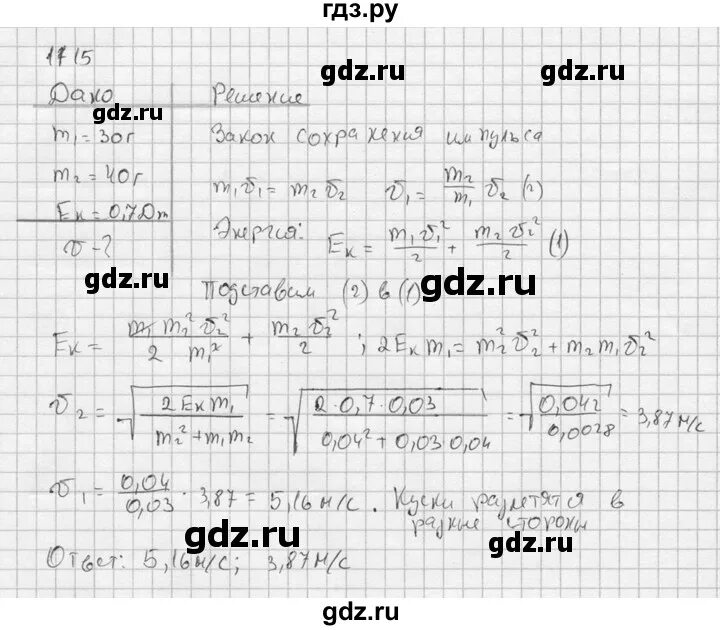 гдз.ру
1715
gdz.ru gdz.ru
Дано Решение
gdz.ru
m₁ = 30г Закон сохранения импульса
m₂ = 40г m₁υ₁ = m₂υ₂ υ₁ = m₂/m₁ υ₂ (2)
Eк = 0,7Дж Энергия: Eк = m₁υ₁²/2 + m₂υ₂²/2 (1)
υ - ?
gdz.ru gdz.ru
Подставим (2) в (1)
Eк = m₁ m₂² υ₂²/2 m₁² + m₂υ₂²/2 ; 2Eк m₁ = m₂²υ₂² + m₂m₁υ₂²
υ₂ = √(2Eк m₁/m₂² + m₁m₂) = √(2·0,7·0,03/0,04² + 0,03·0,04) = √(0,042/0,0028) = 3,87 м/с
gdz.ru gdz.ru
υ₁ = 0,04/0,03 · 3,87 = 5,16 м/с. Куски разлетятся в
разные стороны
gdz.ru gdz.ru
Ответ: 5,16 м/с; 3,87 м/с
gdz.ru